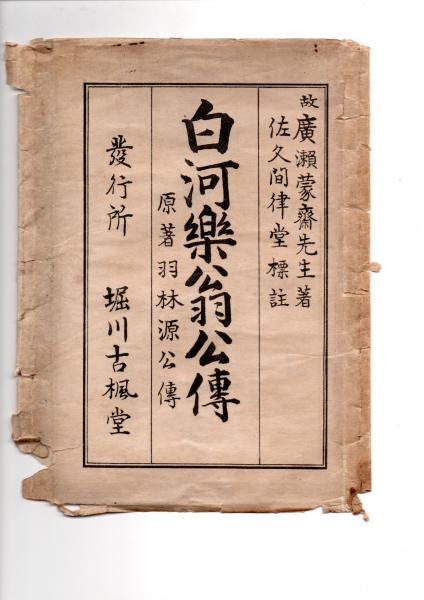 故廣瀨蒙齋先生著
佐久間律堂標註
白河樂翁公傳
原著羽林源公傳
發行所 堀川古楓堂